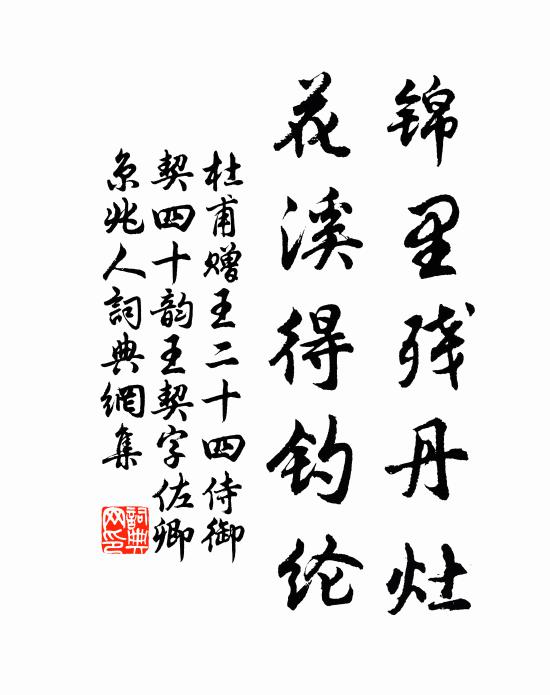 锦里残丹灶
花溪得钓纶
杜甫赠王二十四侍御
契四十韵王契字佐卿
京兆人詞典網集
詞典
网印